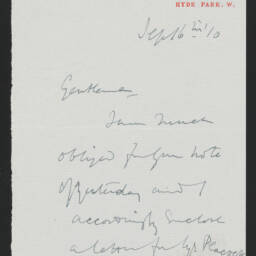 HYDE PARK, W.
Sept 6th /10
Gentlemen
I am much
obliged for your note
of yesterday and I
accordingly enclose
a letter for